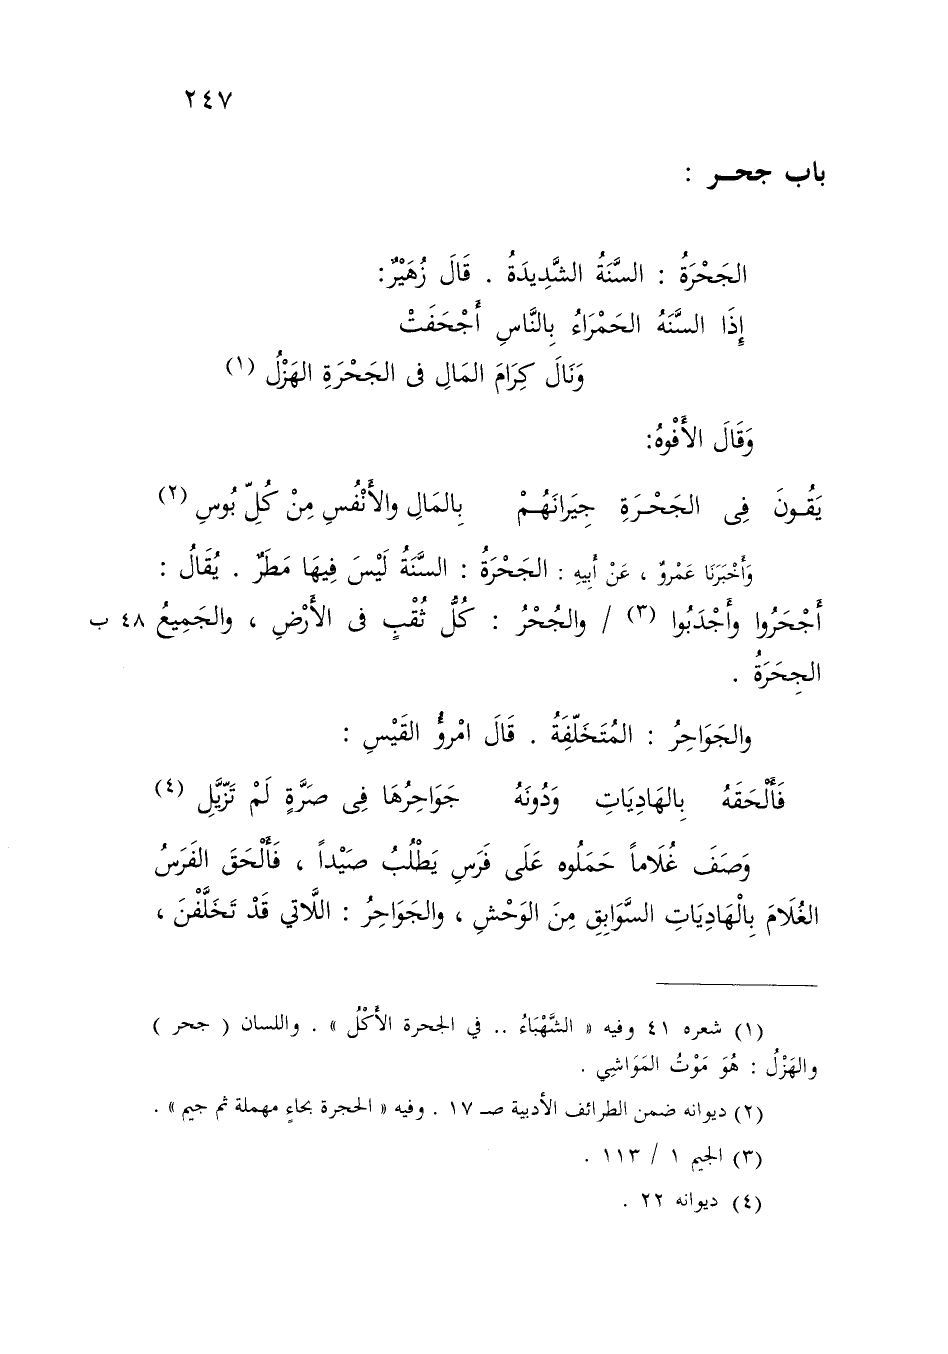 ٢٤٧
باب جحـر :
الجَحْرَةُ : السَّنَةُ الشَّدِيدَةُ . قَالَ زُهَيْرٌ:
إِذَا السَّنَهُ الحَمْرَاءُ بِالنَّاسِ أَجْحَفَتْ
وَنَالَ كِرَامَ المَالِ فى الجَحْرَةِ الهَزْلُ (١)
وَقَالَ الأَفْوهُ:
يَقُـونَ فِى الجَحْـرَةِ جِيَرانَهُـمْ بِالمَالِ والأَنْفُسِ مِنْ كُلِّ بُوسِ (٢)
وَأَخْبَرَنَا عَمْروٌ ، عَنْ أَبِيهِ : الجَحْرَةُ : السَّنَةُ لَيْسَ فِيهَا مَطَرٌ . يُقَالُ :
أَجْحَرُوا وأَجْدَبُوا (٣) / والجُحْرُ : كُلُّ ثُقْبٍ فى الأَرْضِ ، والجَمِيعُ ٤٨ ب
الجِحَرَةُ .
والجَوَاحِرُ : المُتَخَلِّفَةُ . قَالَ امْرؤُ القَيْسِ :
فَأَلْحَقَهُ بِالهَادِيَاتِ وَدُونَهُ جَوَاحِرُهَا فِى صَرَّةٍ لَمْ تَزَّيَّلِ (٤)
وَصَفَ غُلَاماً حَمَلُوه عَلَى فَرَسِ يَطْلُبُ صَيْداً ، فَأَلْحَقَ الفَرَسُ
الغُلَامَ بِالْهَادِيَاتِ السَّوَابِقِ مِنَ الوَحْشِ ، والجَوَاحِرُ : اللَّاتي قَدْ تَخَلَّفْنَ ،
(١) شعره ٤١ وفيه « الشَّهْبَاءُ .. في الجحرة الأَكْلُ » . واللسان ( جحر )
والهَزْلُ : هُوَ مَوْتُ المَوَاشِي .
(٢) ديوانه ضمن الطرائف الأدبية صـ ١٧ . وفيه « الحجرة بحاءٍ مهملة ثم جيم » .
(٣) الجيم ١ / ١١٣ .
(٤) ديوانه ٢٢ .